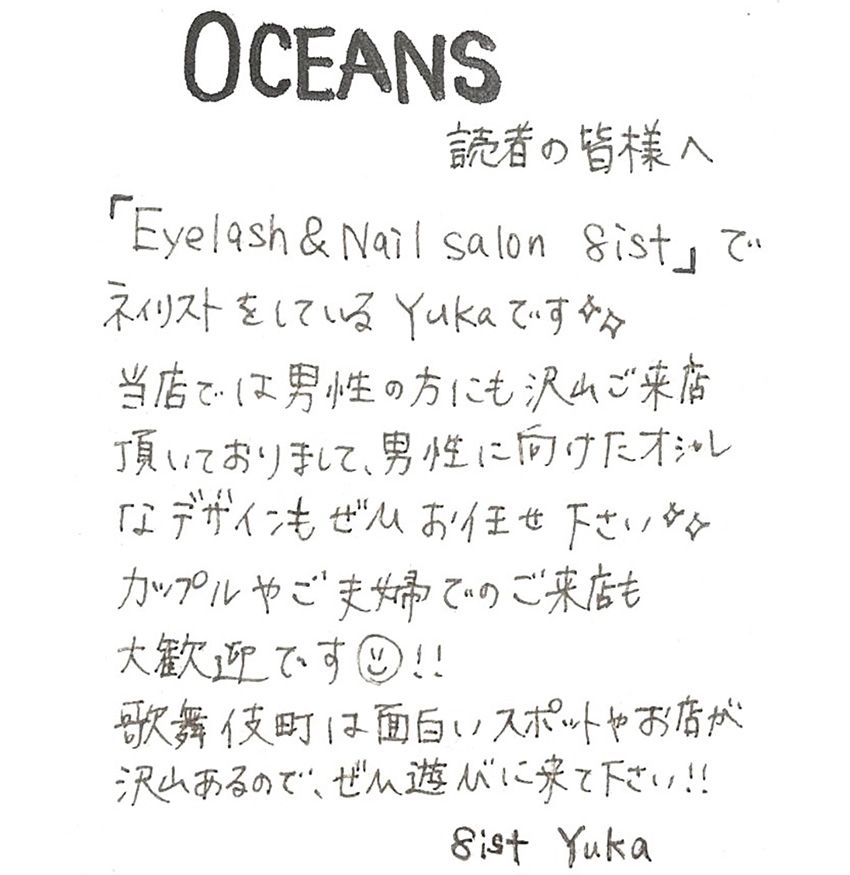 OCEANS
読者の皆様へ
「Eyelash & Nail salon 8ist」で
ネイリストをしているYukaです✨
当店では男性の方にも沢山ご来店
頂いておりまして、男性に向けたオシャレ
なデザインもぜひお任せ下さい✨
カップルやご夫婦でのご来店も
大歓迎です☺!!
歌舞伎町は面白いスポットやお店が
沢山あるので、ぜひ遊びに来て下さい!!
8ist Yuka